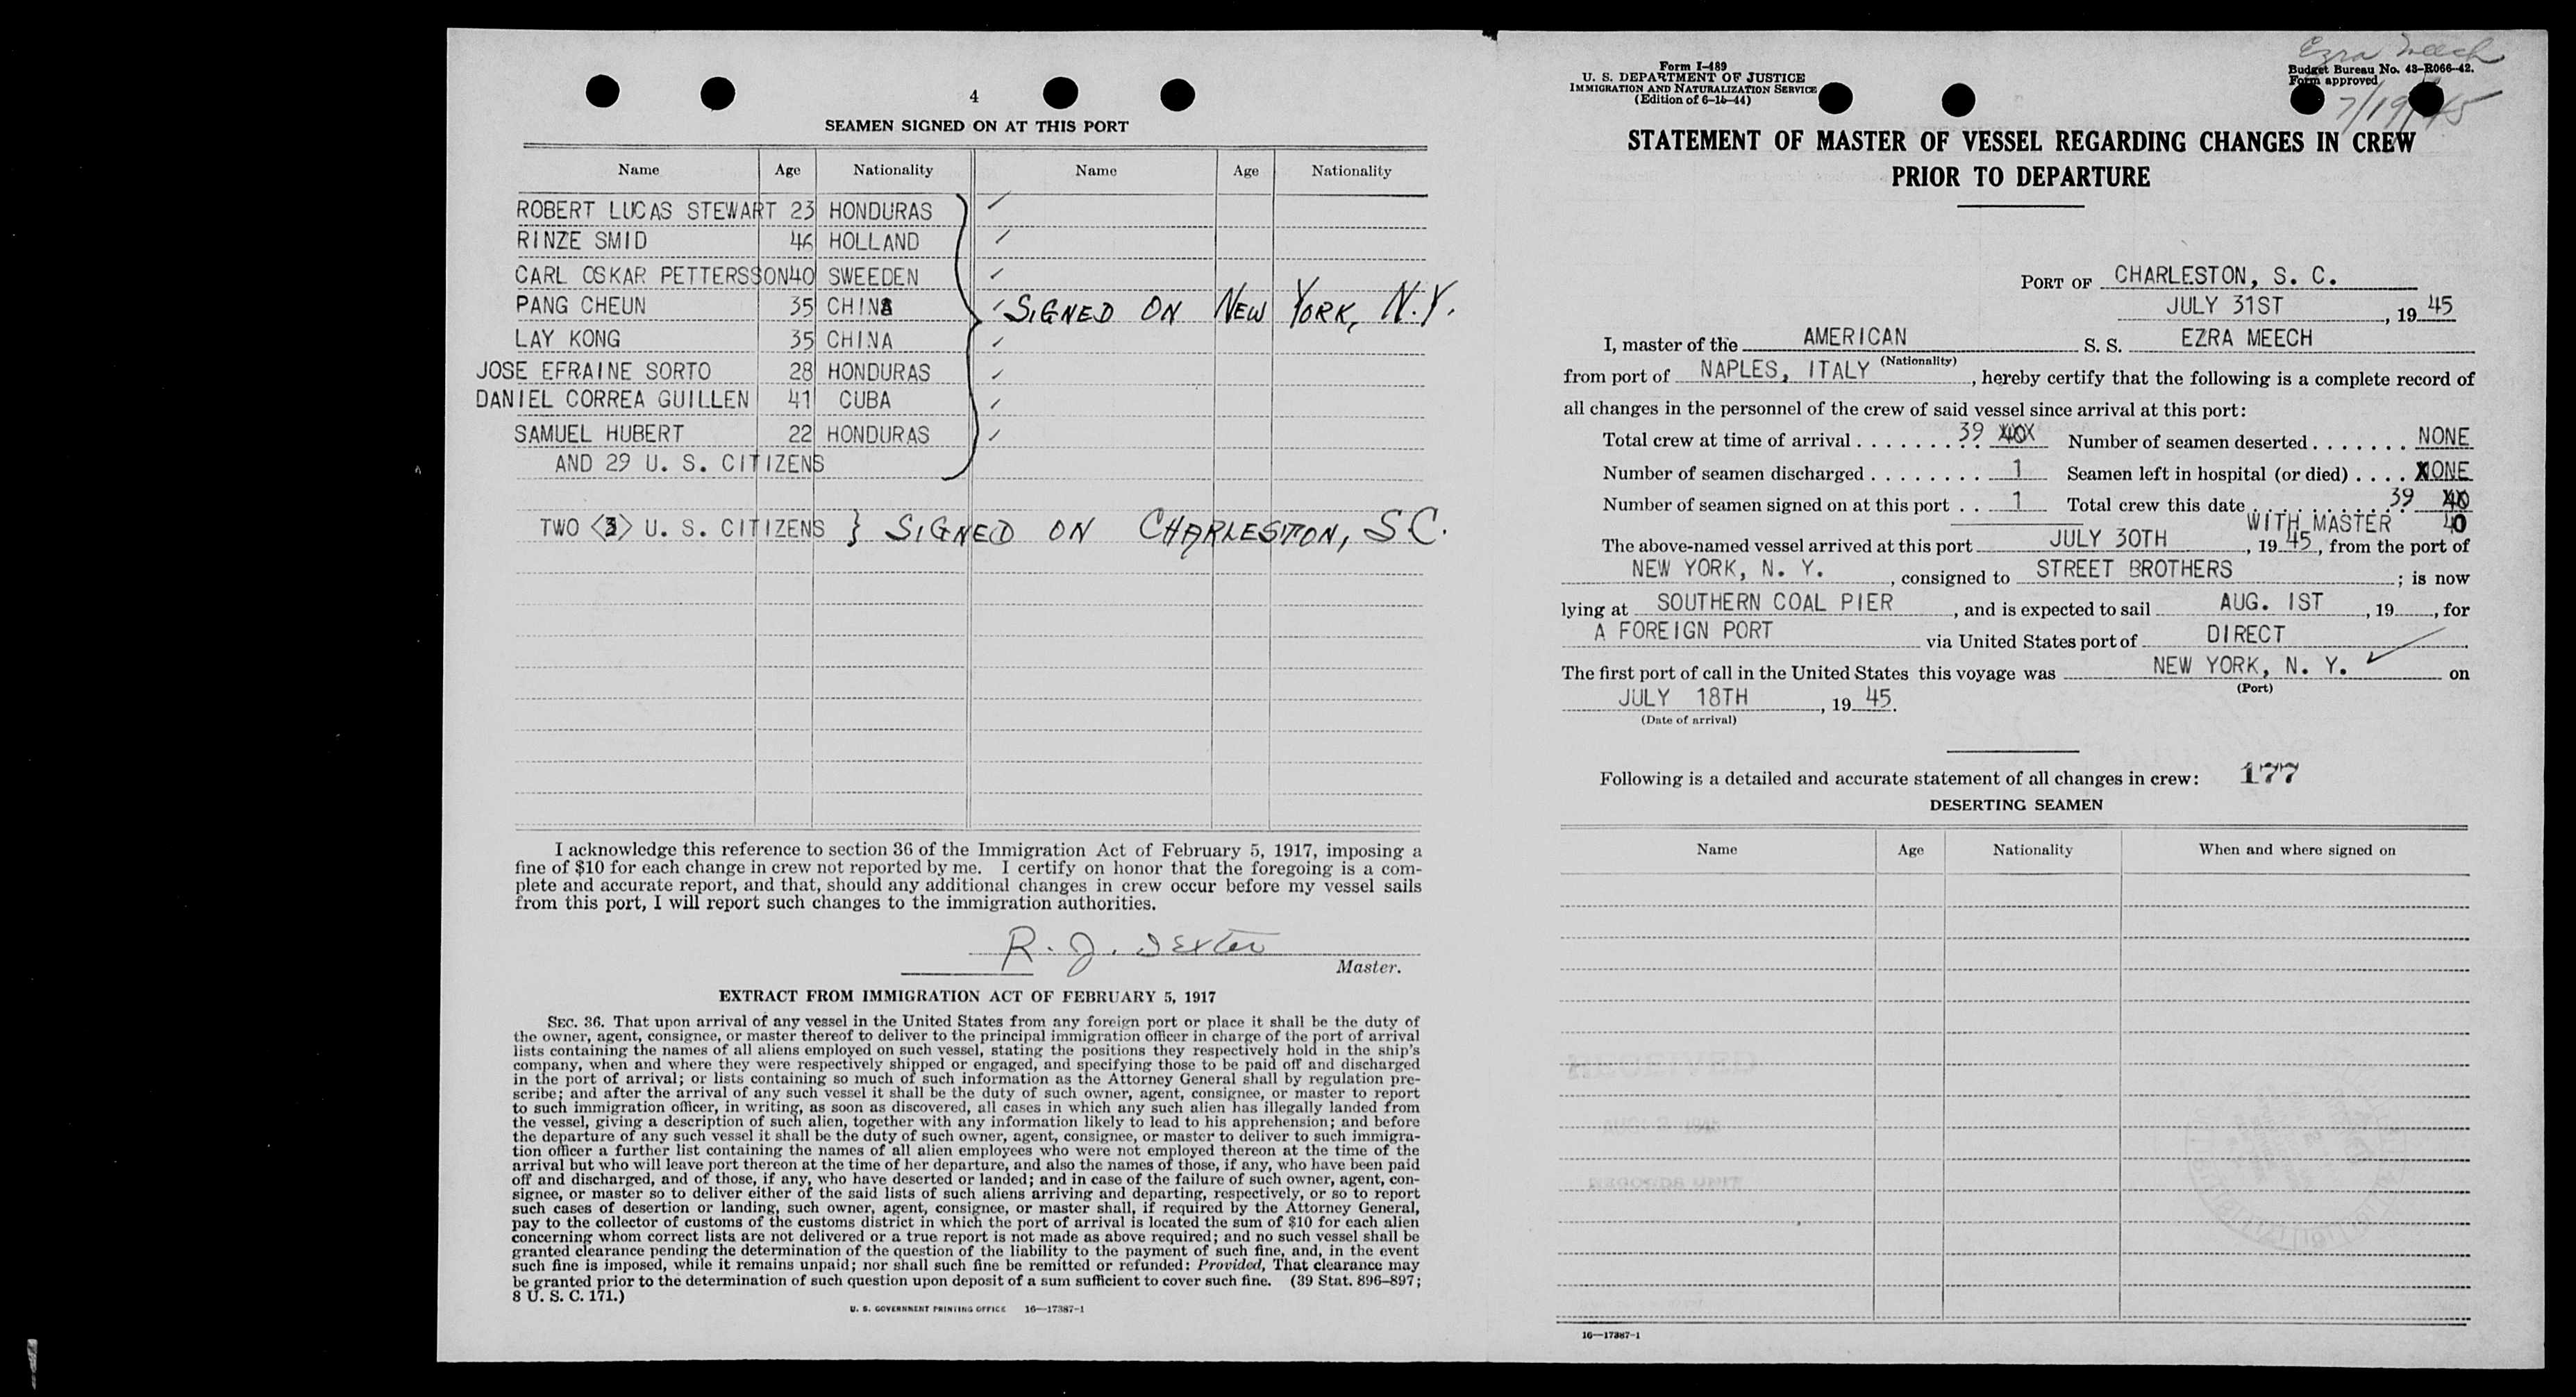 4
SEAMEN SIGNED ON AT THIS PORT
Name Age Nationality Name Age Nationality
ROBERT LUCAS STEWART 23 HONDURAS
RINZE SMID 46 HOLLAND
CARL OSKAR PETTERSSON 40 SWEEDEN
PANG CHEUN 35 CHINA SIGNED ON NEW YORK, N.Y.
LAY KONG 35 CHINA
JOSE EFRAINE SORTO 28 HONDURAS
DANIEL CORREA GUILLEN 41 CUBA
SAMUEL HUBERT 22 HONDURAS
AND 29 U. S. CITIZENS
TWO U. S. CITIZENS } SIGNED ON CHARLESTON, S.C.
I acknowledge this reference to section 36 of the Immigration Act of February 5, 1917, imposing a
fine of $10 for each change in crew not reported by me. I certify on honor that the foregoing is a com-
plete and accurate report, and that, should any additional changes in crew occur before my vessel sails
from this port, I will report such changes to the immigration authorities.
R. J. Dexter
Master.
EXTRACT FROM IMMIGRATION ACT OF FEBRUARY 5, 1917
SEC. 36. That upon arrival of any vessel in the United States from any foreign port or place it shall be the duty of
the owner, agent, consignee, or master thereof to deliver to the principal immigration officer in charge of the port of arrival
lists containing the names of all aliens employed on such vessel, stating the positions they respectively hold in the ship's
company, when and where they were respectively shipped or engaged, and specifying those to be paid off and discharged
in the port of arrival; or lists containing so much of such information as the Attorney General shall by regulation pre-
scribe; and after the arrival of any such vessel it shall be the duty of such owner, agent, consignee, or master to report
to such immigration officer, in writing, as soon as discovered, all cases in which any such alien has illegally landed from
the vessel, giving a description of such alien, together with any information likely to lead to his apprehension; and before
the departure of any such vessel it shall be the duty of such owner, agent, consignee, or master to deliver to such immigra-
tion officer a further list containing the names of all alien employees who were not employed thereon at the time of the
arrival but who will leave port thereon at the time of her departure, and also the names of those, if any, who have been paid
off and discharged, and of those, if any, who have deserted or landed; and in case of the failure of such owner, agent, con-
signee, or master so to deliver either of the said lists of such aliens arriving and departing, respectively, or so to report
such cases of desertion or landing, such owner, agent, consignee, or master shall, if required by the Attorney General,
pay to the collector of customs of the customs district in which the port of arrival is located the sum of $10 for each alien
concerning whom correct lists are not delivered or a true report is not made as above required; and no such vessel shall be
granted clearance pending the determination of the question of the liability to the payment of such fine, and, in the event
such fine is imposed, while it remains unpaid; nor shall such fine be remitted or refunded: Provided, That clearance may
be granted prior to the determination of such question upon deposit of a sum sufficient to cover such fine. (39 Stat. 896–897;
8 U. S. C. 171.)
U. S. GOVERNMENT PRINTING OFFICE 16—17387-1
Ezra Meech
Form I-489
U. S. DEPARTMENT OF JUSTICE
IMMIGRATION AND NATURALIZATION SERVICE
(Edition of 6-15-44)
Budget Bureau No. 43-R066-42.
Form approved
7/19/45
STATEMENT OF MASTER OF VESSEL REGARDING CHANGES IN CREW
PRIOR TO DEPARTURE
PORT OF CHARLESTON, S. C.
JULY 31ST, 19 45
I, master of the AMERICAN S. S. EZRA MEECH
(Nationality)
from port of NAPLES, ITALY, hereby certify that the following is a complete record of
all changes in the personnel of the crew of said vessel since arrival at this port:
Total crew at time of arrival . . . . . . . 39 Number of seamen deserted . . . . . . . NONE
Number of seamen discharged . . . . . . . . 1 Seamen left in hospital (or died) . . . . NONE
Number of seamen signed on at this port . . 1 Total crew this date . . . . . . . . . 39
WITH MASTER 40
The above-named vessel arrived at this port JULY 30TH, 19 45, from the port of
NEW YORK, N. Y., consigned to STREET BROTHERS; is now
lying at SOUTHERN COAL PIER, and is expected to sail AUG. 1ST, 19, for
A FOREIGN PORT via United States port of DIRECT
The first port of call in the United States this voyage was NEW YORK, N. Y. on
(Port)
JULY 18TH, 19 45.
(Date of arrival)
Following is a detailed and accurate statement of all changes in crew: 177
DESERTING SEAMEN
Name Age Nationality When and where signed on
16—17387-1